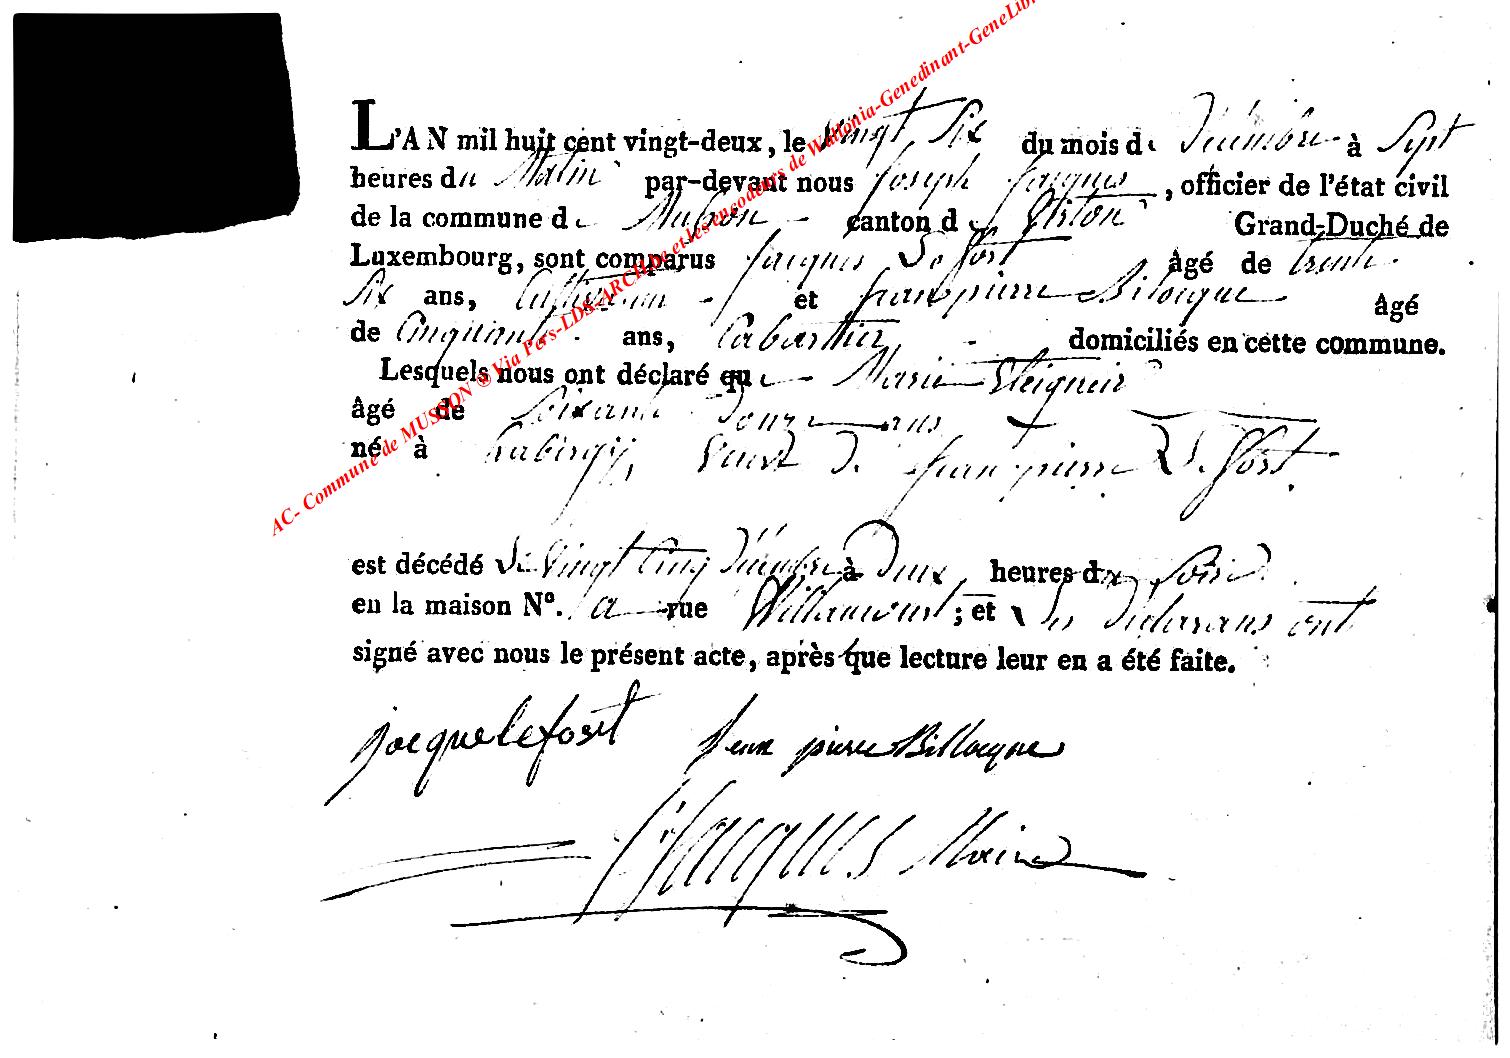 L'AN mil huit cent vingt-deux, le Vingt Six du mois de Décembre à Sept
heures du Matin par-devant nous Joseph Jacques, officier de l'état civil
de la commune de Musson canton de Virton Grand-Duché de
Luxembourg, sont comparus Jacques Lefort âgé de trente
Six ans, Cultivateur et jean pierre Bilocque âgé
de Cinquante ans, Cabartier domiciliés en cette commune.
Lesquels nous ont déclaré que Marie
âgé de Soixante Douze ans
né à Veuve de jean pierre Lefort
est décédé le Vingt Cinq Décembre à Deux heures du Soir
en la maison Nº. a rue Willancourt; et les Declarans ont
signé avec nous le présent acte, après que lecture leur en a été faite.
jacque lefort jean pierre Billocque
J Jacques Maire
AC- Commune de MUSSON ® Via Pers-LDS-ARCHive et les encodeurs de Wallonia-Genedinant-GeneLib